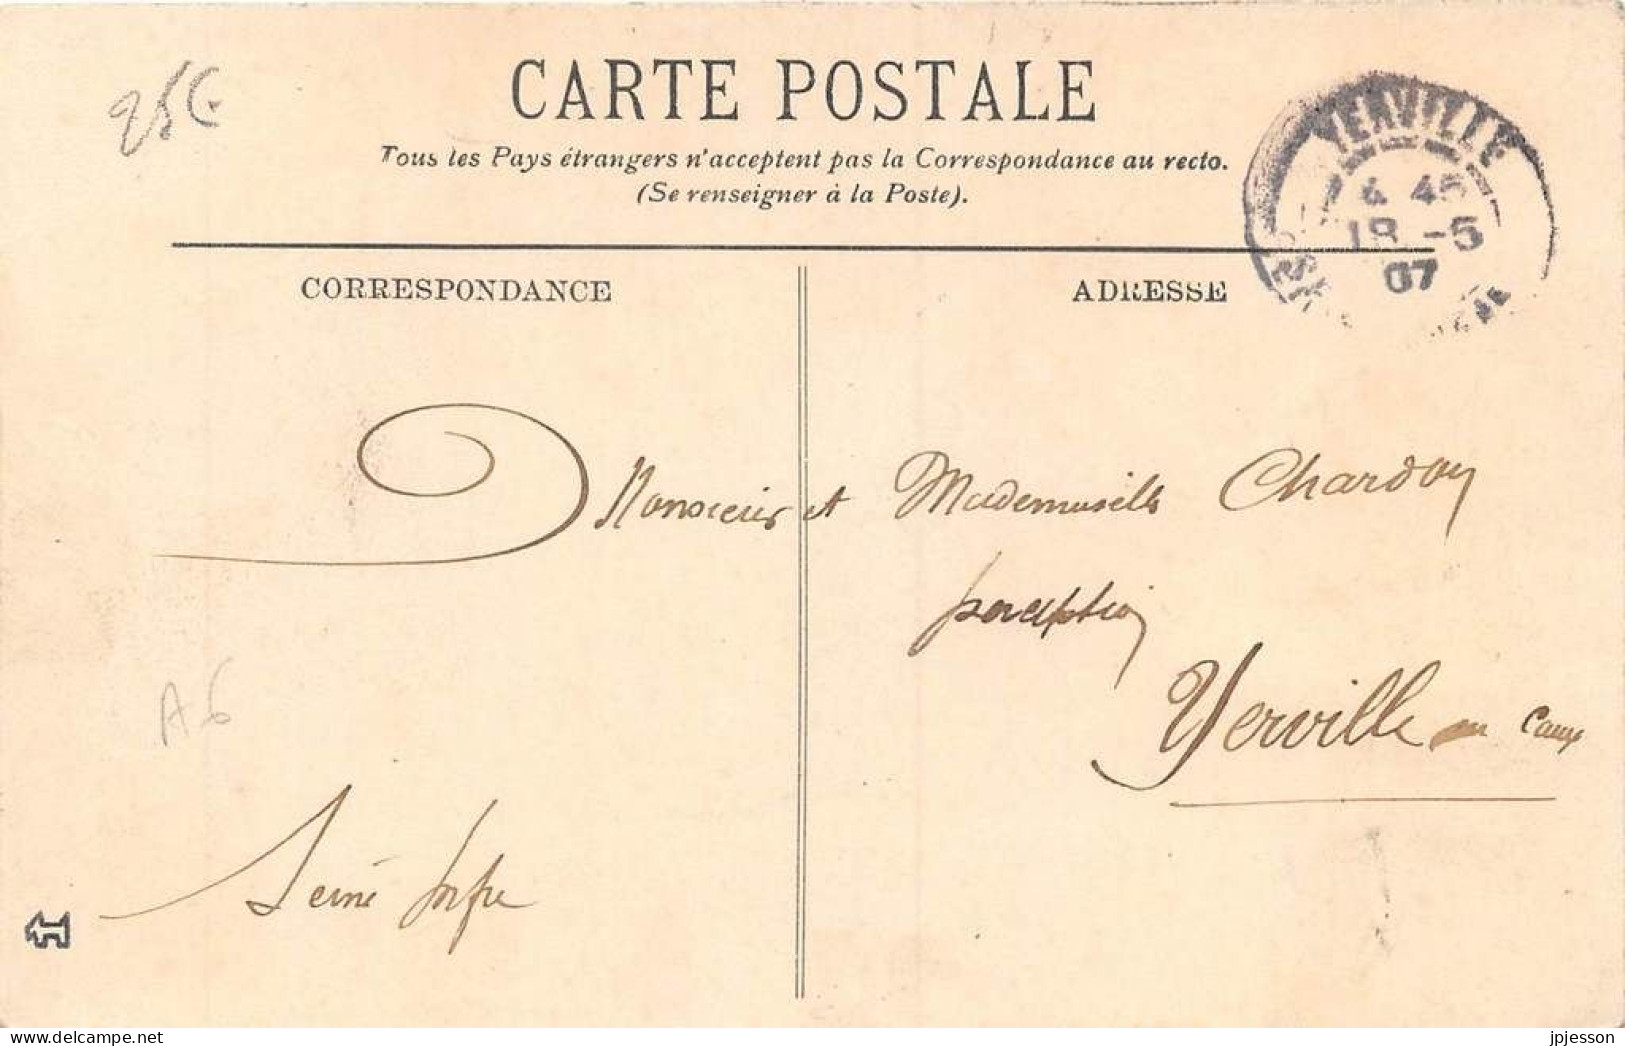 25€
CARTE POSTALE
Tous les Pays étrangers n'acceptent pas la Correspondance au recto.
(Se renseigner à la Poste).
YERVILLE
4 45
18 -5
07
CORRESPONDANCE
ADRESSE
Monsieur et Mademoiselle Chardon
perception
Yerville en Caux
A6
Seine Infre
delcampe.net
jpjesson